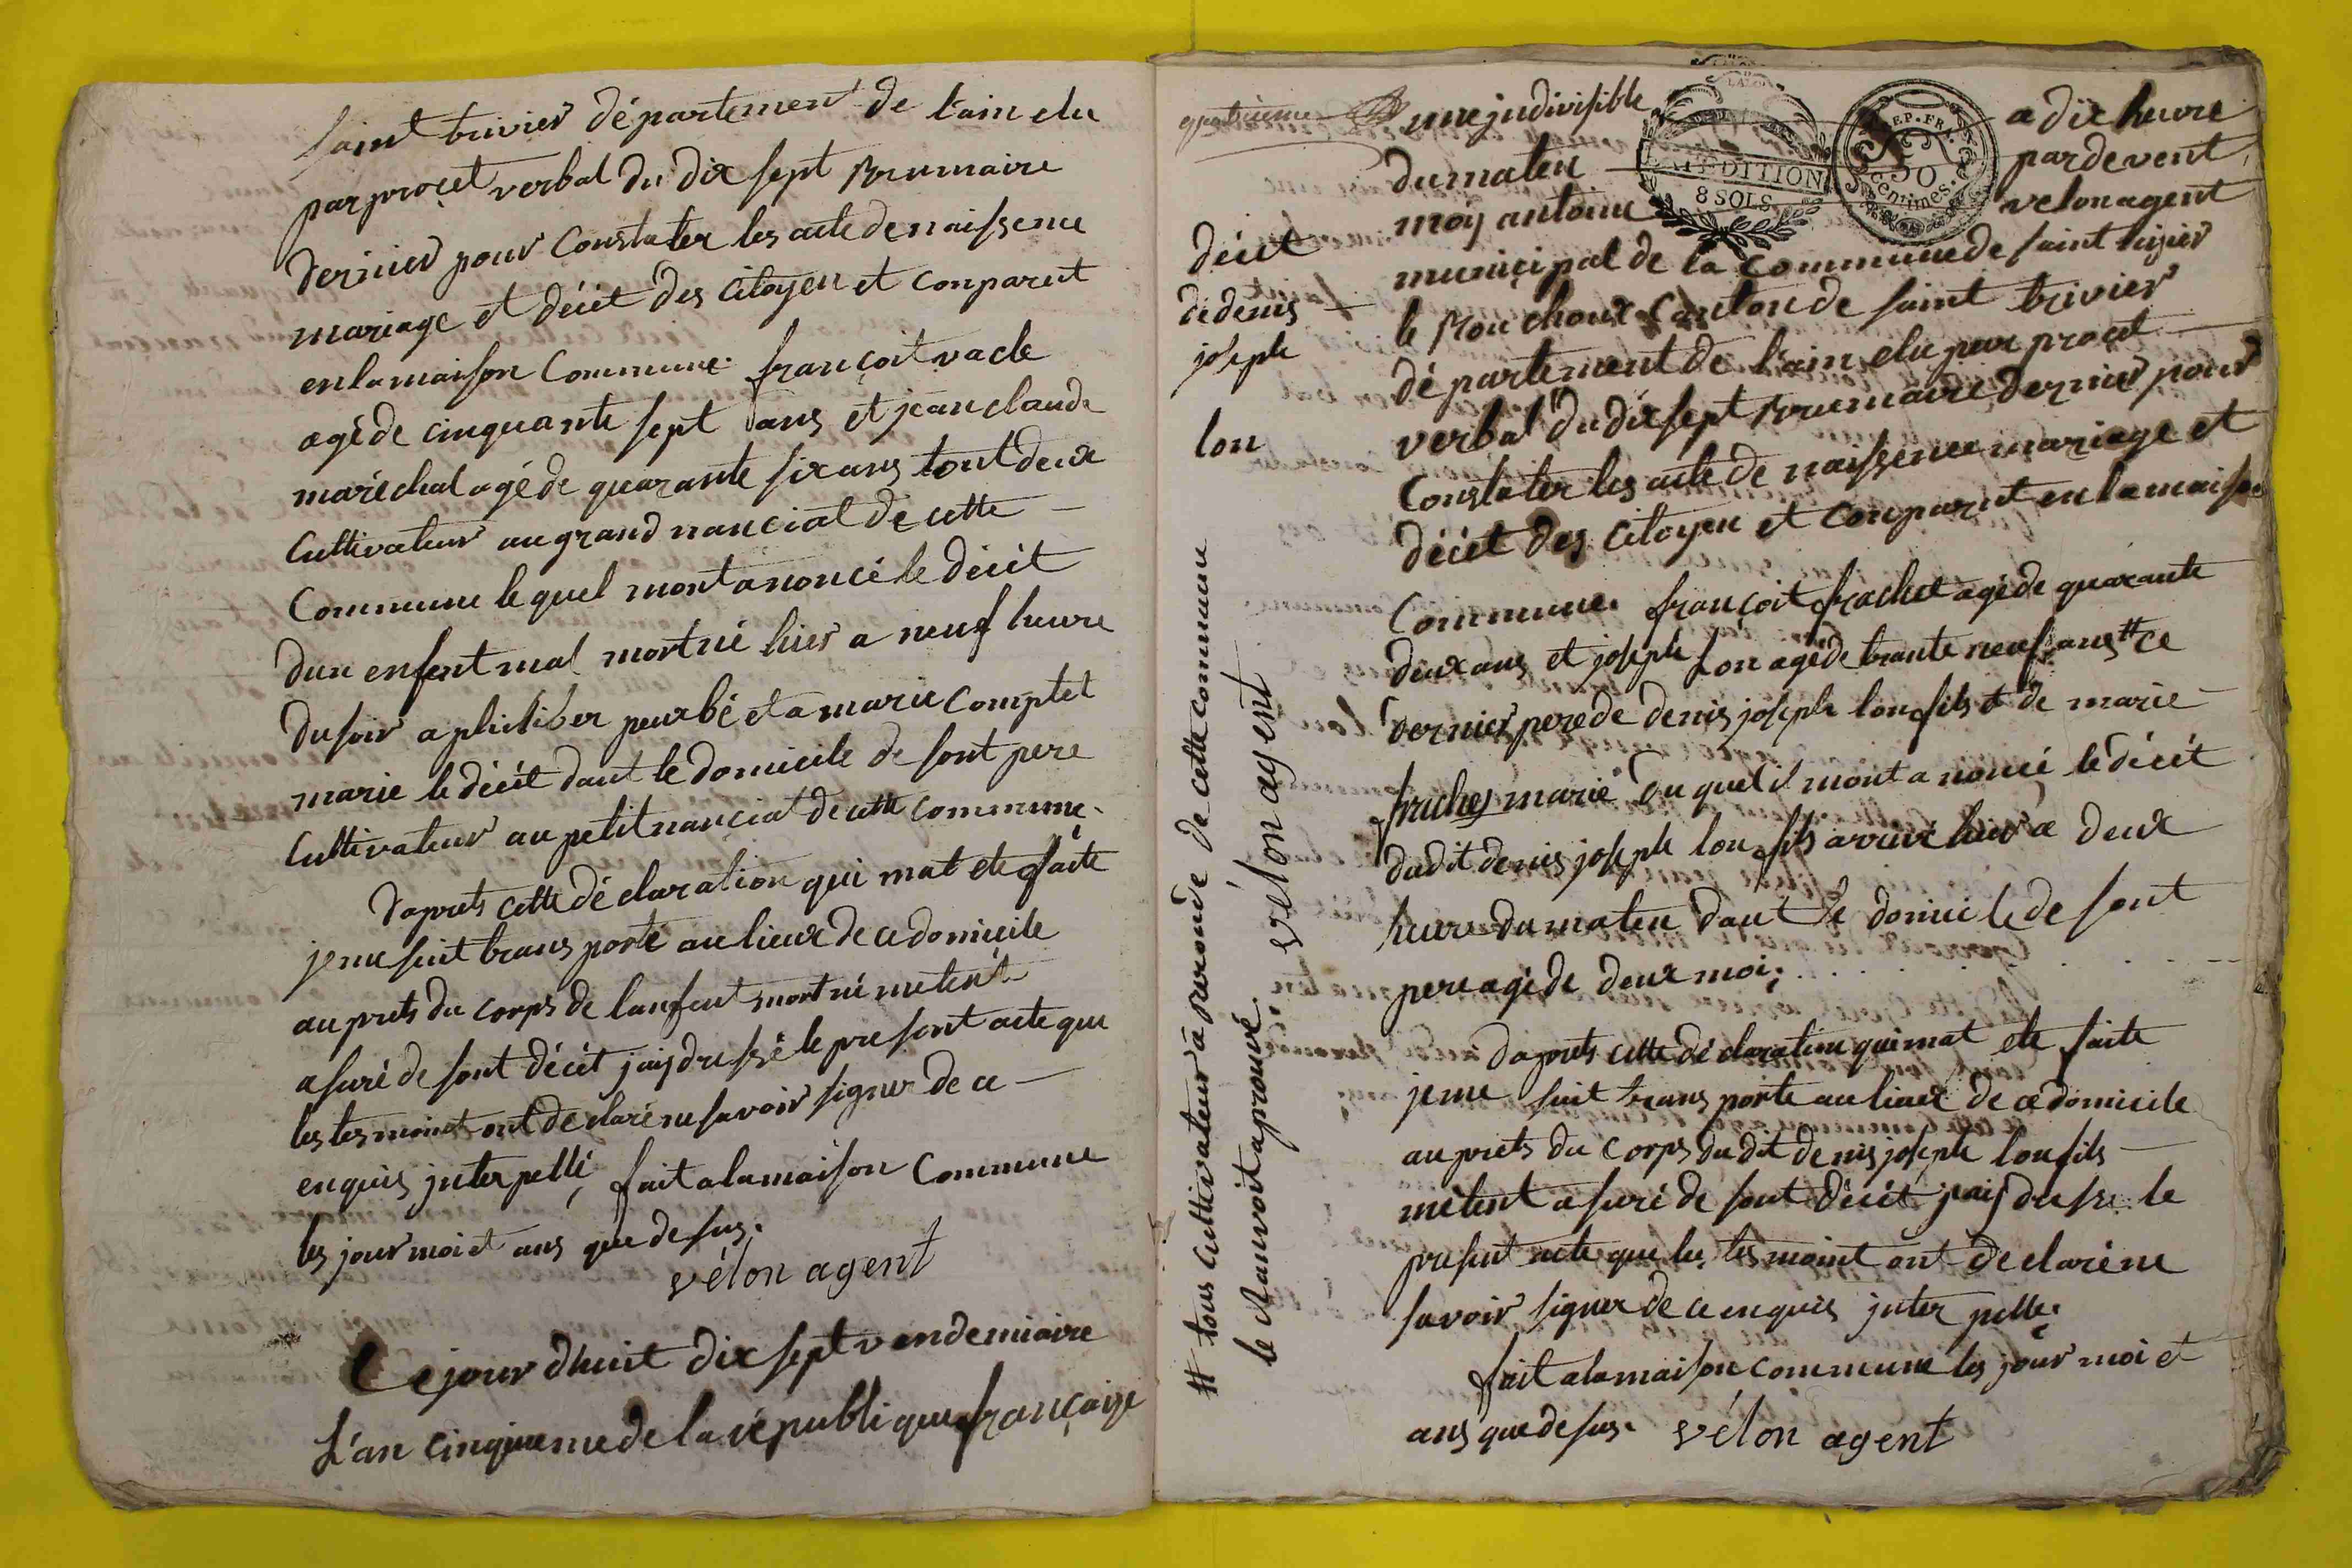 saint trivier département de l'ain elu
par procet verbal du dix sept Brumaire
dernier pour Constater les acte de naissence
mariage et décet des citoyen et conparut
en la maison Commune. françoit vacle
agé de cinquante sept ans et jean claude
maréchal agé de quarante six ans tout deux
Cultivateur au grand nanciat de cette
Commune le quel mont anoncé le décét
dun enfent mal mort né hier a neuf heure
du soir a philiber peurbé et a marie comptet
marie le décét dant le domicile de sont pere
Cultivateur au petit nanciat de cette commune.
daprets cette déclaration qui mat ete faite
je me suit trans porté au lieux de ce domicile
au prets du corps de lanfent mort né metent
asuré de sont décét jaiy dressé le presont acte que
les tesmoint ont déclaré ne savoir signer de ce
enquis jnterpellé, fait a la maison Commune
les jour moi et ans que desus.
vélon agent
Ce jour dhuit dix sept vendemiaire
L'an cinquieme de la république françaize
quatrieme
une jndivisible
a dix heure
du maten
par devent
moy antoine
velon agent
EXPÉDITION
8 SOLS
REP. FRA.
50
centimes.
décet
de denis
joseph
lon
municipal de la Commune de saint nizier
le Bouchoux Canton de saint trivier
département de l'ain elu par procet
verbal du dix sept Brumaire dernier pour
Constater les acte de naissence mariage et
décet des citoyen et conparut en la maison
Commune. françoit frachet agé de quarante
deux ans et joseph Lon agé de trante neuf ans # ce
dernier pere de denis joseph lon fils et de marie
fraches marie du quel il mont anoncé le décét
dudit denis joseph lon fils arrivé hier a deux
heure du maten dant le domicile de sont
pere agé de deux moi.
daprets cette déclaration qui mat ete faite
je me suit trans porté au lieux de ce domicile
au prets du corps dudit denis joseph lon fils
métent asuré de sont décét jaiy dressé le
present acte que les tesmoint ont declaré ne
savoir signer de ce enquis jnter pelle.
fait a la maison commune les jour moi et
ans que desus. vélon agent
# tous cultivateur à peronde de cette commune
le ranvoit aprouvé. vélon agent